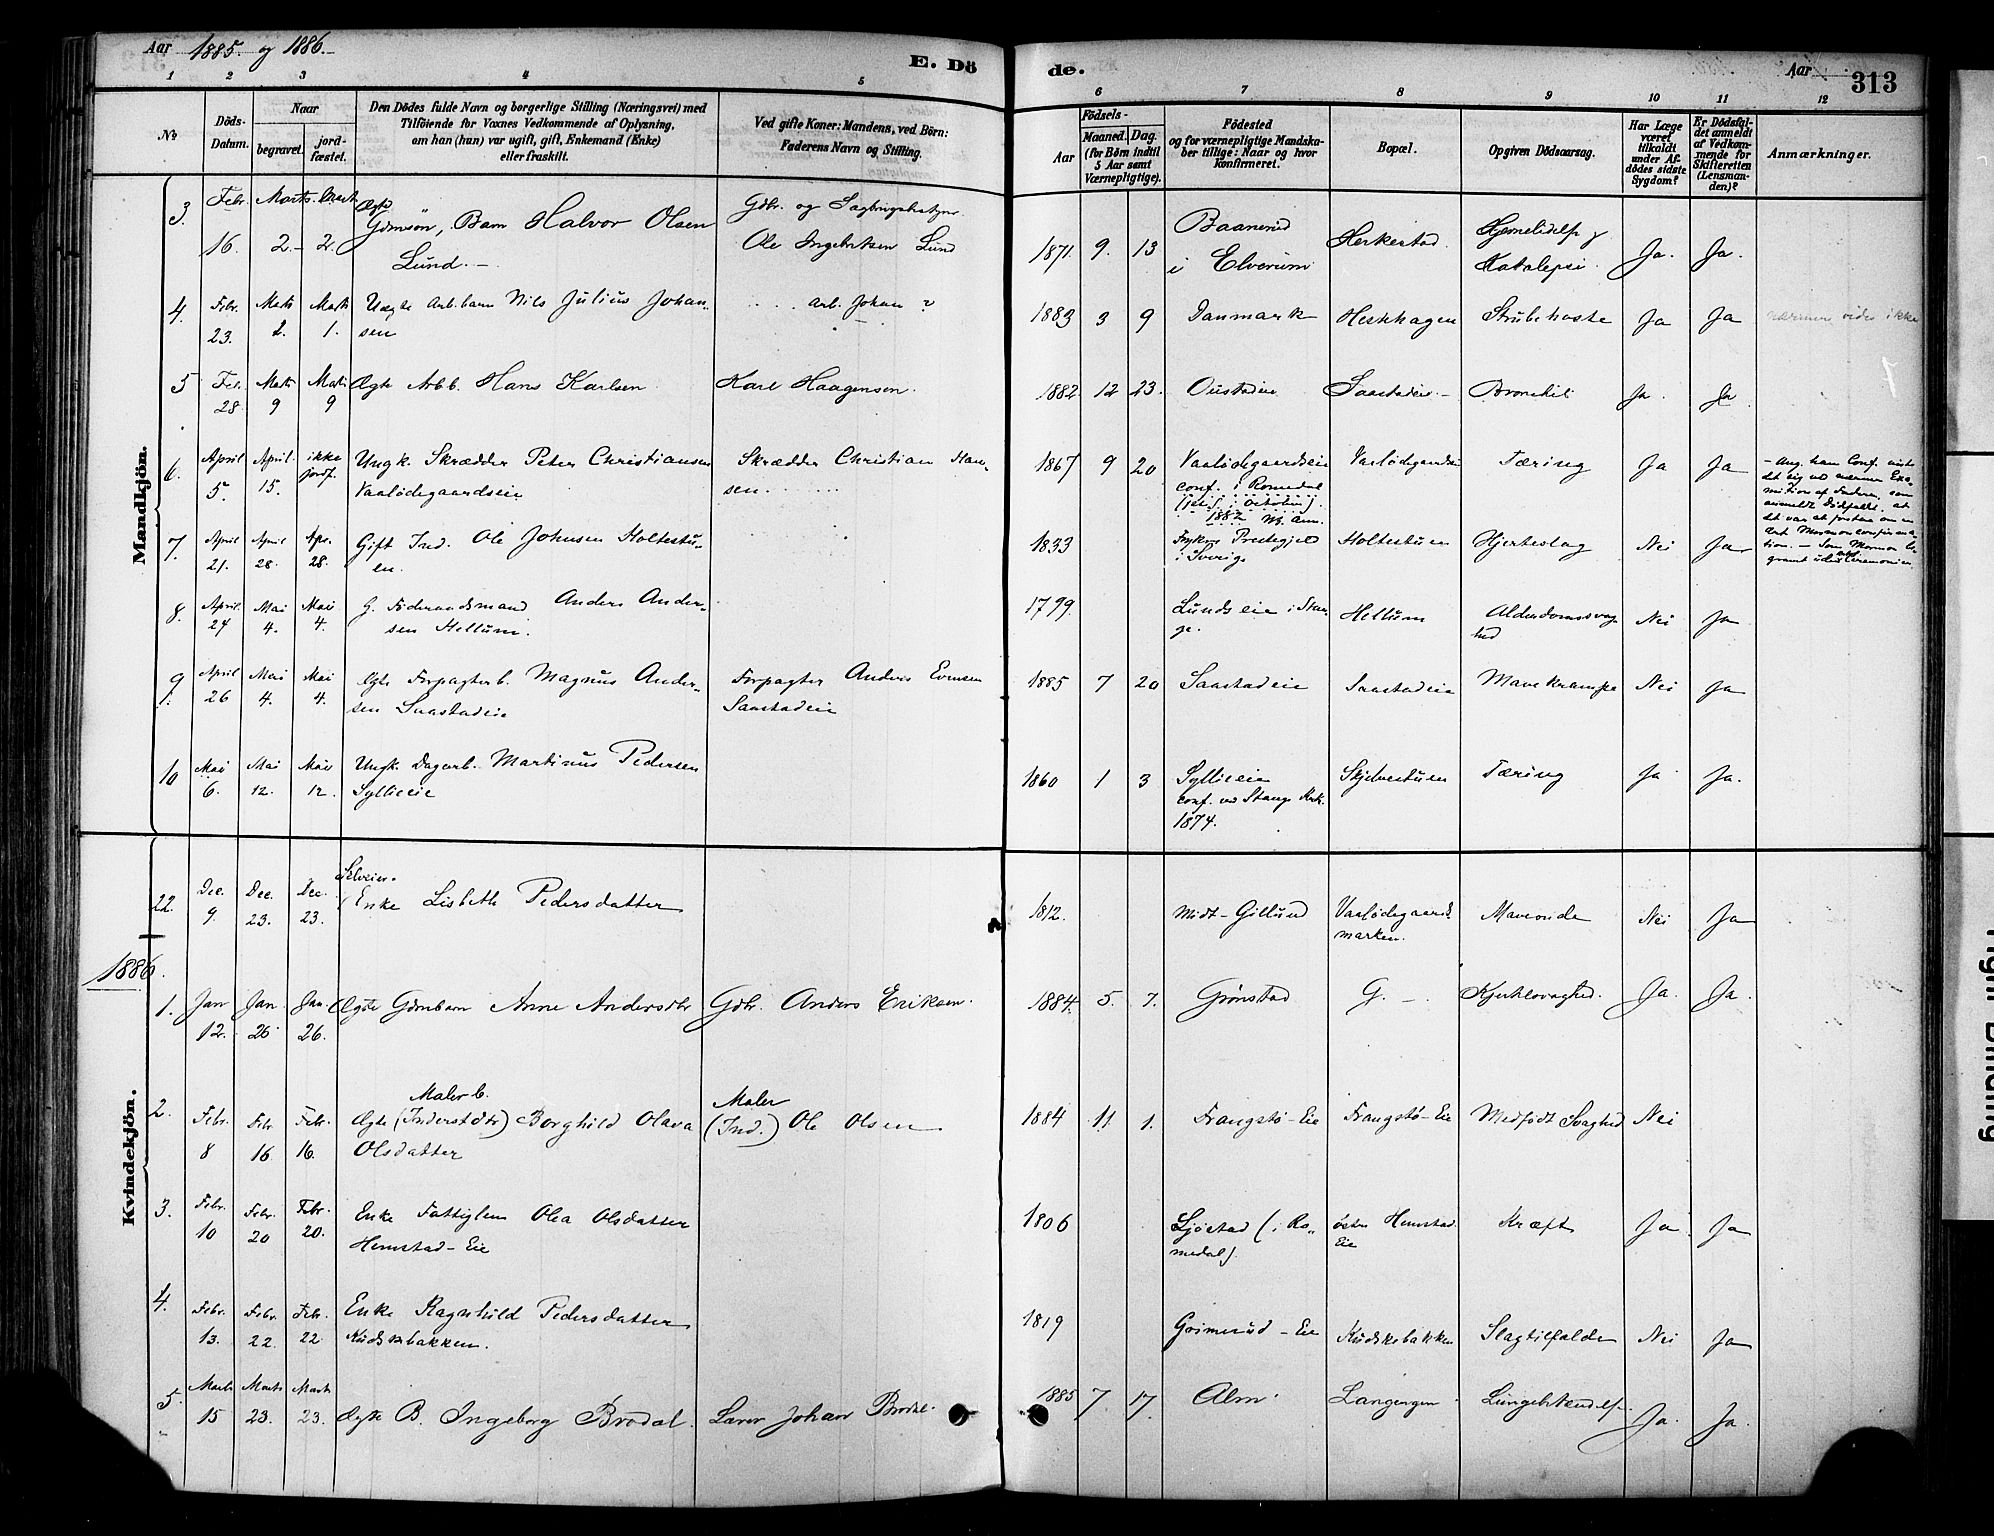 Aar 1885. og 1886.
E. Dö
de.
Aar
313
1 2 3 4 5 6 7 8 9 10 11 12
No
Döds-Datum.
Naar
begravet.
jord-fæstet.
Den Dödes fulde Navn og borgerlige Stilling (Næringsvei) med
Tilföiende for Voxnes Vedkommende af Oplysning,
om han (hun) var ugift, gift, Enkemand (Enke)
eller fraskilt.
Ved gifte Koner: Mandens, ved Börn:
Faderens Navn og Stilling.
Födsels-
Aar
Maaned. Dag.
(for Börn indtil
5 Aar samt
Værnepligtige).
Födested
og for værnepligtige Mandska-
ber tillige: Naar og hvor
konfirmeret.
Bopæl.
Opgiven Dödsaarsag.
Har Læge
været
tilkaldt
under Af-
dödes sidste
Sygdom?
Er Dödsfal-
det anmeldt
af Vedkom-
mende for
Skifteretten
(Lensman-
den)?
Anmærkninger.
Mandkjön.
3. Febr. 16. Marts 2. Marts 2. Ægte Gdmsøn, Barn Halvor Olsen Lund. Gdbr. og Ole Ingebritsen Lund 1871. 9. 13 Baanerud i Elverum Herkestad. Katalepsi. Ja. Ja.
4. Febr. 23. Marts 2. Marts 1. Uægte Arb. barn Nils Julius Johan-
sen Arb. Johan ? 1883 3 9 Danmark Heskhagen Strubehoste Ja Ja nærmere vides ikke
5 Febr. 28 Marts 9 Marts 9 Ægte Arb.b. Hans Karlsen Karl Haagensen. 1882 12 23. Oustadeie Saastadeie Bronchit Ja. Ja
6. April 5. April 15. ikke jordf. Ungk. Skrædder Peter Christiansen
Vaalödegaardseie Skrædder Christian Han-
sen. 1867 9 20 Vaalödegaardseie
conf. i Romedal
1882 NB. Anm. Vaalödegaardseie Tæring Ja Ja
7. April 21. April 28. Apr. 28. Gift Ind. Ole Johnsen Holtestu-
en. 1833 Prestegjeld
i Sverige Holtestuen Hjerteslag Nei Ja
8. April 24 Mai 4. Mai 4. G. Föderaadsmand Anders Ander-
sen Hellum. 1799. Lundseie i Stan-
ge. Hellum Alderdomssvag-
hed Nei Ja
9. April 26 Mai 4. Mai 4. Ægte Forpagterb. Magnus Ander-
sen Saastadeie Forpagter Anders Evensen
Saastadeie 1885 7 20 Saastadeie Saastadeie Mavekrampe Nei Ja
10 Mai 6. Mai 12. Mai 12. Ungk. Dagarb. Martinus Pedersen
Syllieeie 1860 1 3 Syllieeie
conf. ved Stange Kirk.
1874. Skjelvestuen Tæring Ja Ja.
Kvindekjön.
22. Dec. 9. Dec. 23. Dec. 23. Selveier-
Enke Lisbeth Pedersdatter 1812. Midt-Gillund Vaalödegaards
marken. Maveonde Nei Ja
1886.
1. Jan 12. Jan 26 Jan. 26. Ægte Gdmbarn Anne Andersdtr Gdbr. Anders Eriksen. 1884. 5. 7. Grönstad G. Ja. Ja.
2. Febr. 8 Febr 16. Febr. 16. Maler b.
Ægte (Inderstdtr) Borghild Olava
Olsdatter Maler
(Ind.) Ole Olsen 1884 11 1. Frangstö-Eie Frangstö-Eie Medfödt Svaghed Nei
3. Febr. 10 Febr. 20 Febr. 20. Enke Fattiglem Olea Olsdatter
Hemstad-Eie 1806 Ljöstad (i Ro-
medal). östre Hemstad
Eie Kræft Ja Ja
4. Febr. 13. Febr. 22. Febr. 22 Enke Ragnhild Pedersdatter
Kudskbakken. 1819 Grimerud-Eie Kudskbakken Slagtilfælde Nei Ja
5. Marts 15 Marts 23. Marts 23. Ægte B. Ingeborg Brodal. Lærer Johan Brodal. 1885 7 17. Alm. Langengen Lungebetændelse Ja. Ja.